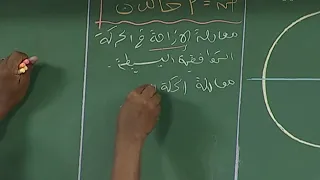 معادلة الإزاحة في الحركة
التوافقية البسيطة .
معادلة الحركة